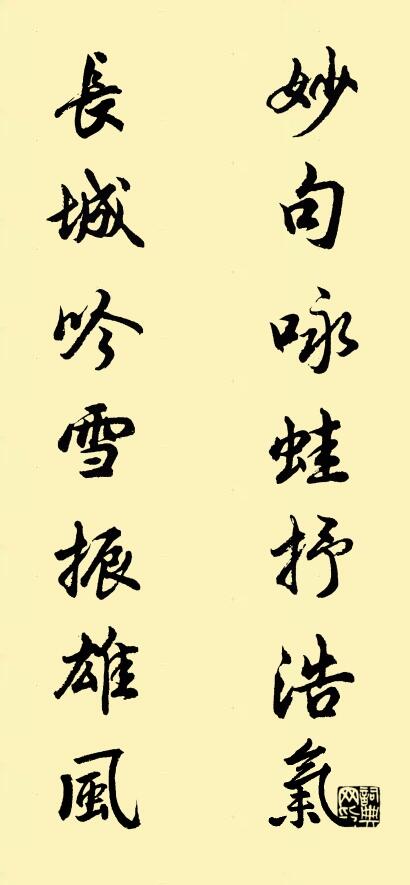 妙句咏蛙抒浩氣
長城吟雪振雄風
詞典網